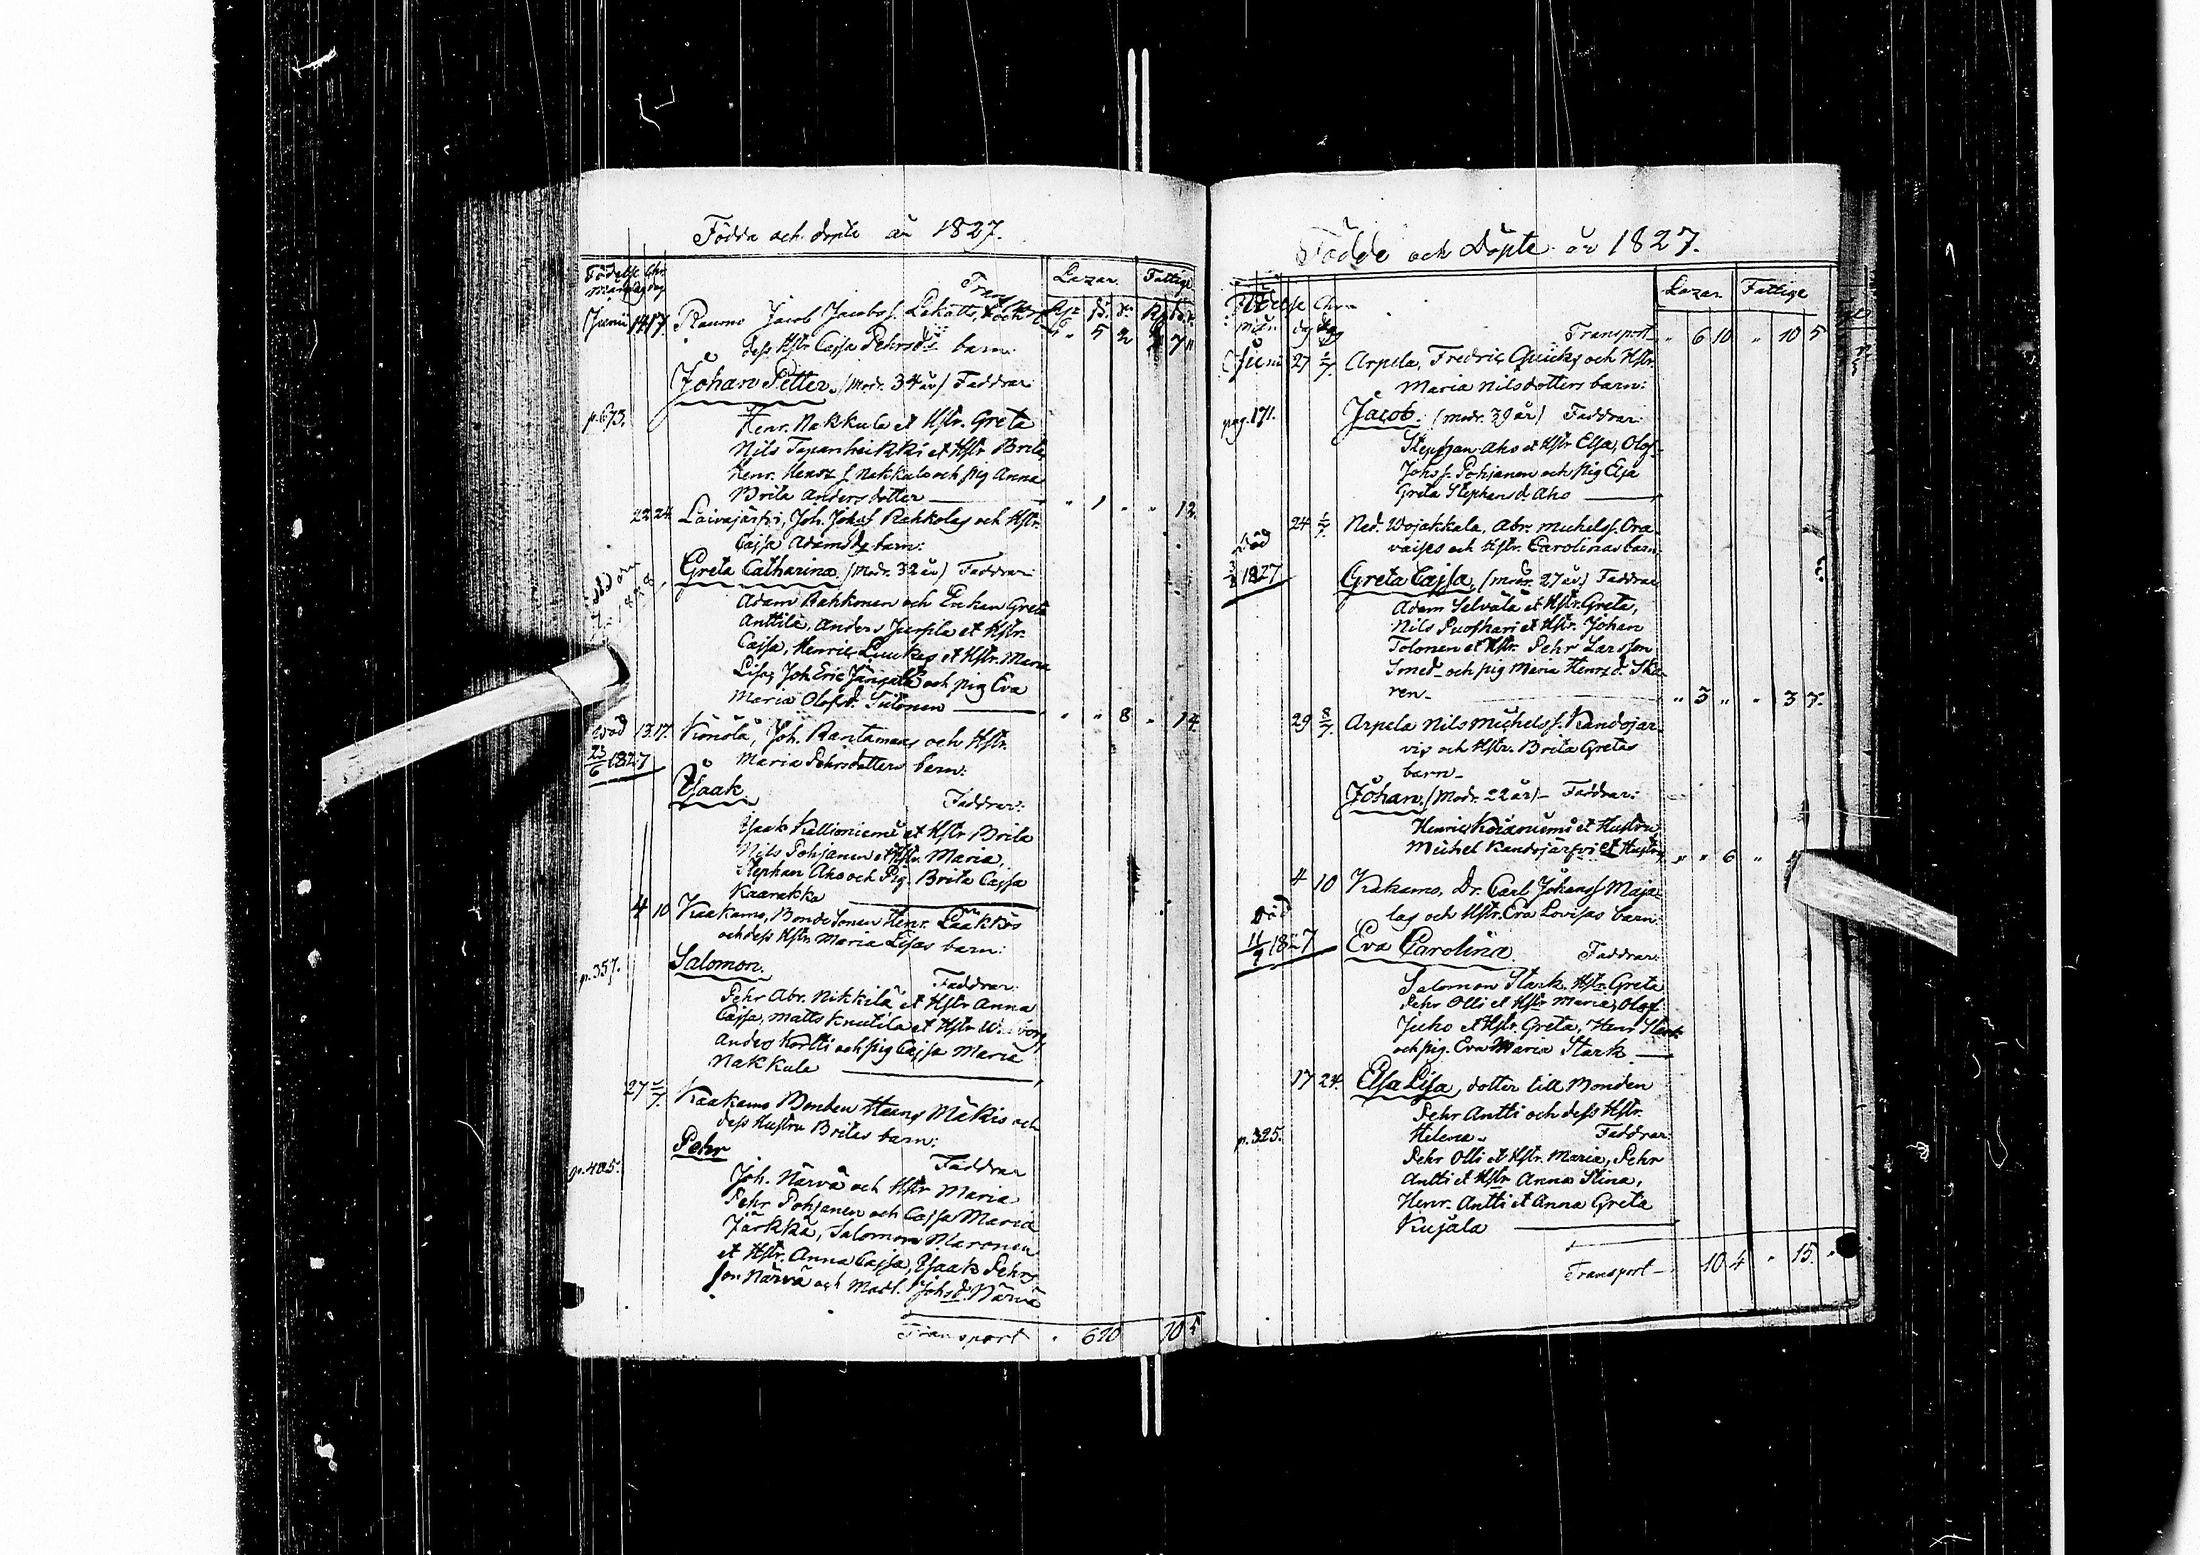 Födda och döpte år 1827.
Födelse Chr.
månad dag dag
Lazar. Fattige
Juni 14 17. Raumo Jacob Jacobss. Lakatti, och
dess Hstr Cajsa Pehrsd:s barn: " 5 2 7 "
Johan Petter. (Modr. 34 år) Faddrar
p. 673. Henr. Nakkula et Hstr. Greta
Nils Tapanheikki et Hstr Brita,
Henr. Henrz s. Nakkula och pig Anna
Brita Andersdotter — " 1 " " 12.
22 24. Laivajärfvi, Joh. Johss Rahkolas och Hstr.
Cajsa Adamsds barn:
Greta Catharina. (Modr. 32 år) Faddrar:
Adam Rahkonen och Enkan Greta
Anttila, Anders Juopila et Hstr.
Cajsa, Henric Luukas et Hstr. Maria
Lisa, Joh Eric Jängälä och pig Eva
Maria Olofsd. Tülonen — " " 8 " 14.
död 13. 17. Könölä, Joh. Rantamaas och Hstr.
23/6 1827 Maria Pehrsdotters barn:
Isaak Faddrar:
Isaak Kallioniemi et Hstr Brita
Nils Pohjanen et Hstr. Maria,
Stephan Aho och Pig. Brita Cajsa
Kaarakka —
4 10 Kaakamo, Bonde Sonen Henr. Lääkkös
och dess Hstr Maria Lisas barn:
p. 357. Salomon. Faddrar:
Pehr Abr. Nikkilä et Hstr Anna
Cajsa, Matts Knutila et Hstr Walborg,
Anders Kortti och pig Cajsa Maria
Nakkula —
27 1/7. Kaakamo Bonden Hans Mäkis och
dess Hustru Britas barn:
Pehr
p. 405. Faddrar
Joh. Närvä och Hstr Maria
Pehr Pohjanen och Cajsa Maria
Järkkä, Salomon Maronen
et Hstr. Anna Cajsa, Isaak Pehrs-
son Närvä och Madl. Johsd. Närvä
Transport " 6 10 10 5
Födde och Döpte år 1827.
Födelse Chr.
mån. dag dag
Lazar. Fattige
Transport " 6 10 " 10 5
Juni 27 1/7. Arpela, Fredric Quicks och Hstr.
Maria Nilsdotters barn:
pag. 171. Jacob. (Modr. 39 år) Faddrar:
Stephan Aho et Hstr Elsa, Olof
Johss. Pohjanen och pig Elsa
Greta Stephansd. Aho —
24 1/7. Ned. Wojakkala, Abr. Michelss. Ora-
vaises och Hstr. Carolinas barn.
död
3/8 1827 Greta Cajsa, (modr. 27 år.) Faddrar
Adam Selvälä et Hstr. Greta,
Nils Puoskari et Hstr. Johan
Tolonen et Hstr. Pehr Larsson
Smed och pig Maria Henrzd. Ska-
ren — " 3 " " 3 7.
29 8/7. Arpela Nils Michelss. Kandojär-
vis och Hstr. Brita Gretas
barn —
Johan. (Modr. 22 år) — Faddrar:
Henric Koivuniemi et Hustru,
Michel Kandojärfvi et Hustru " " 6 "
4 10 Kakamo, Dr. Carl Johanss Maja-
las och Hstr. Eva Lovisas barn:
död
11/7 1827 Eva Carolina. Faddrar:
Salomon Stark Hstr. Greta
Pehr Olli et Hstr Maria, Olof
Juho et Hstr. Greta, Henr. Stark
och pig. Eva Maria Stark —
17 24. Elsa Lisa, dotter till Bonden
Pehr Antti och dess Hstr.
p. 325. Helena. Faddrar:
Pehr Olli et Hstr. Maria, Pehr
Antti et Hstr Anna Stina,
Henr. Antti et Anna Greta
Kujala —
Transport — 10 4 " 15. "